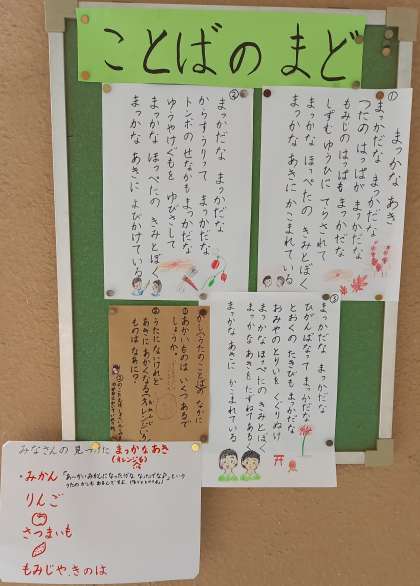 ことばの まど
①
まっかな あき
まっかだな まっかだな
つたの はっぱが まっかだな
もみじの はっぱも まっかだな
しずむ ゆうひに てらされて
まっかな ほっぺたの きみとぼく
まっかな あきに かこまれている
②
まっかだな まっかだな
からすうりって まっかだな
トンボの せなかも まっかだな
ゆうやけぐもを ゆびさして
まっかな ほっぺたの きみとぼく
まっかな あきに よびかけている
③
まっかだな まっかだな
ひがんばなって まっかだな
とおくの たきびも まっかだな
おみやの とりいを くぐりぬけ
まっかな ほっぺたの きみとぼく
まっかな あきを たずねてあるく
まっかな あきに かこまれている
かし(うたのことば)の なかに
あかいものは いくつあるで
しょうか。
うたに ないけれど
あきに あかくなる(オレンジ
ものは なあに?
みなさんの 見つけた まっかな あき
(オレンジも)
・みかん
りんご
さつまいも
もみじや、きのは